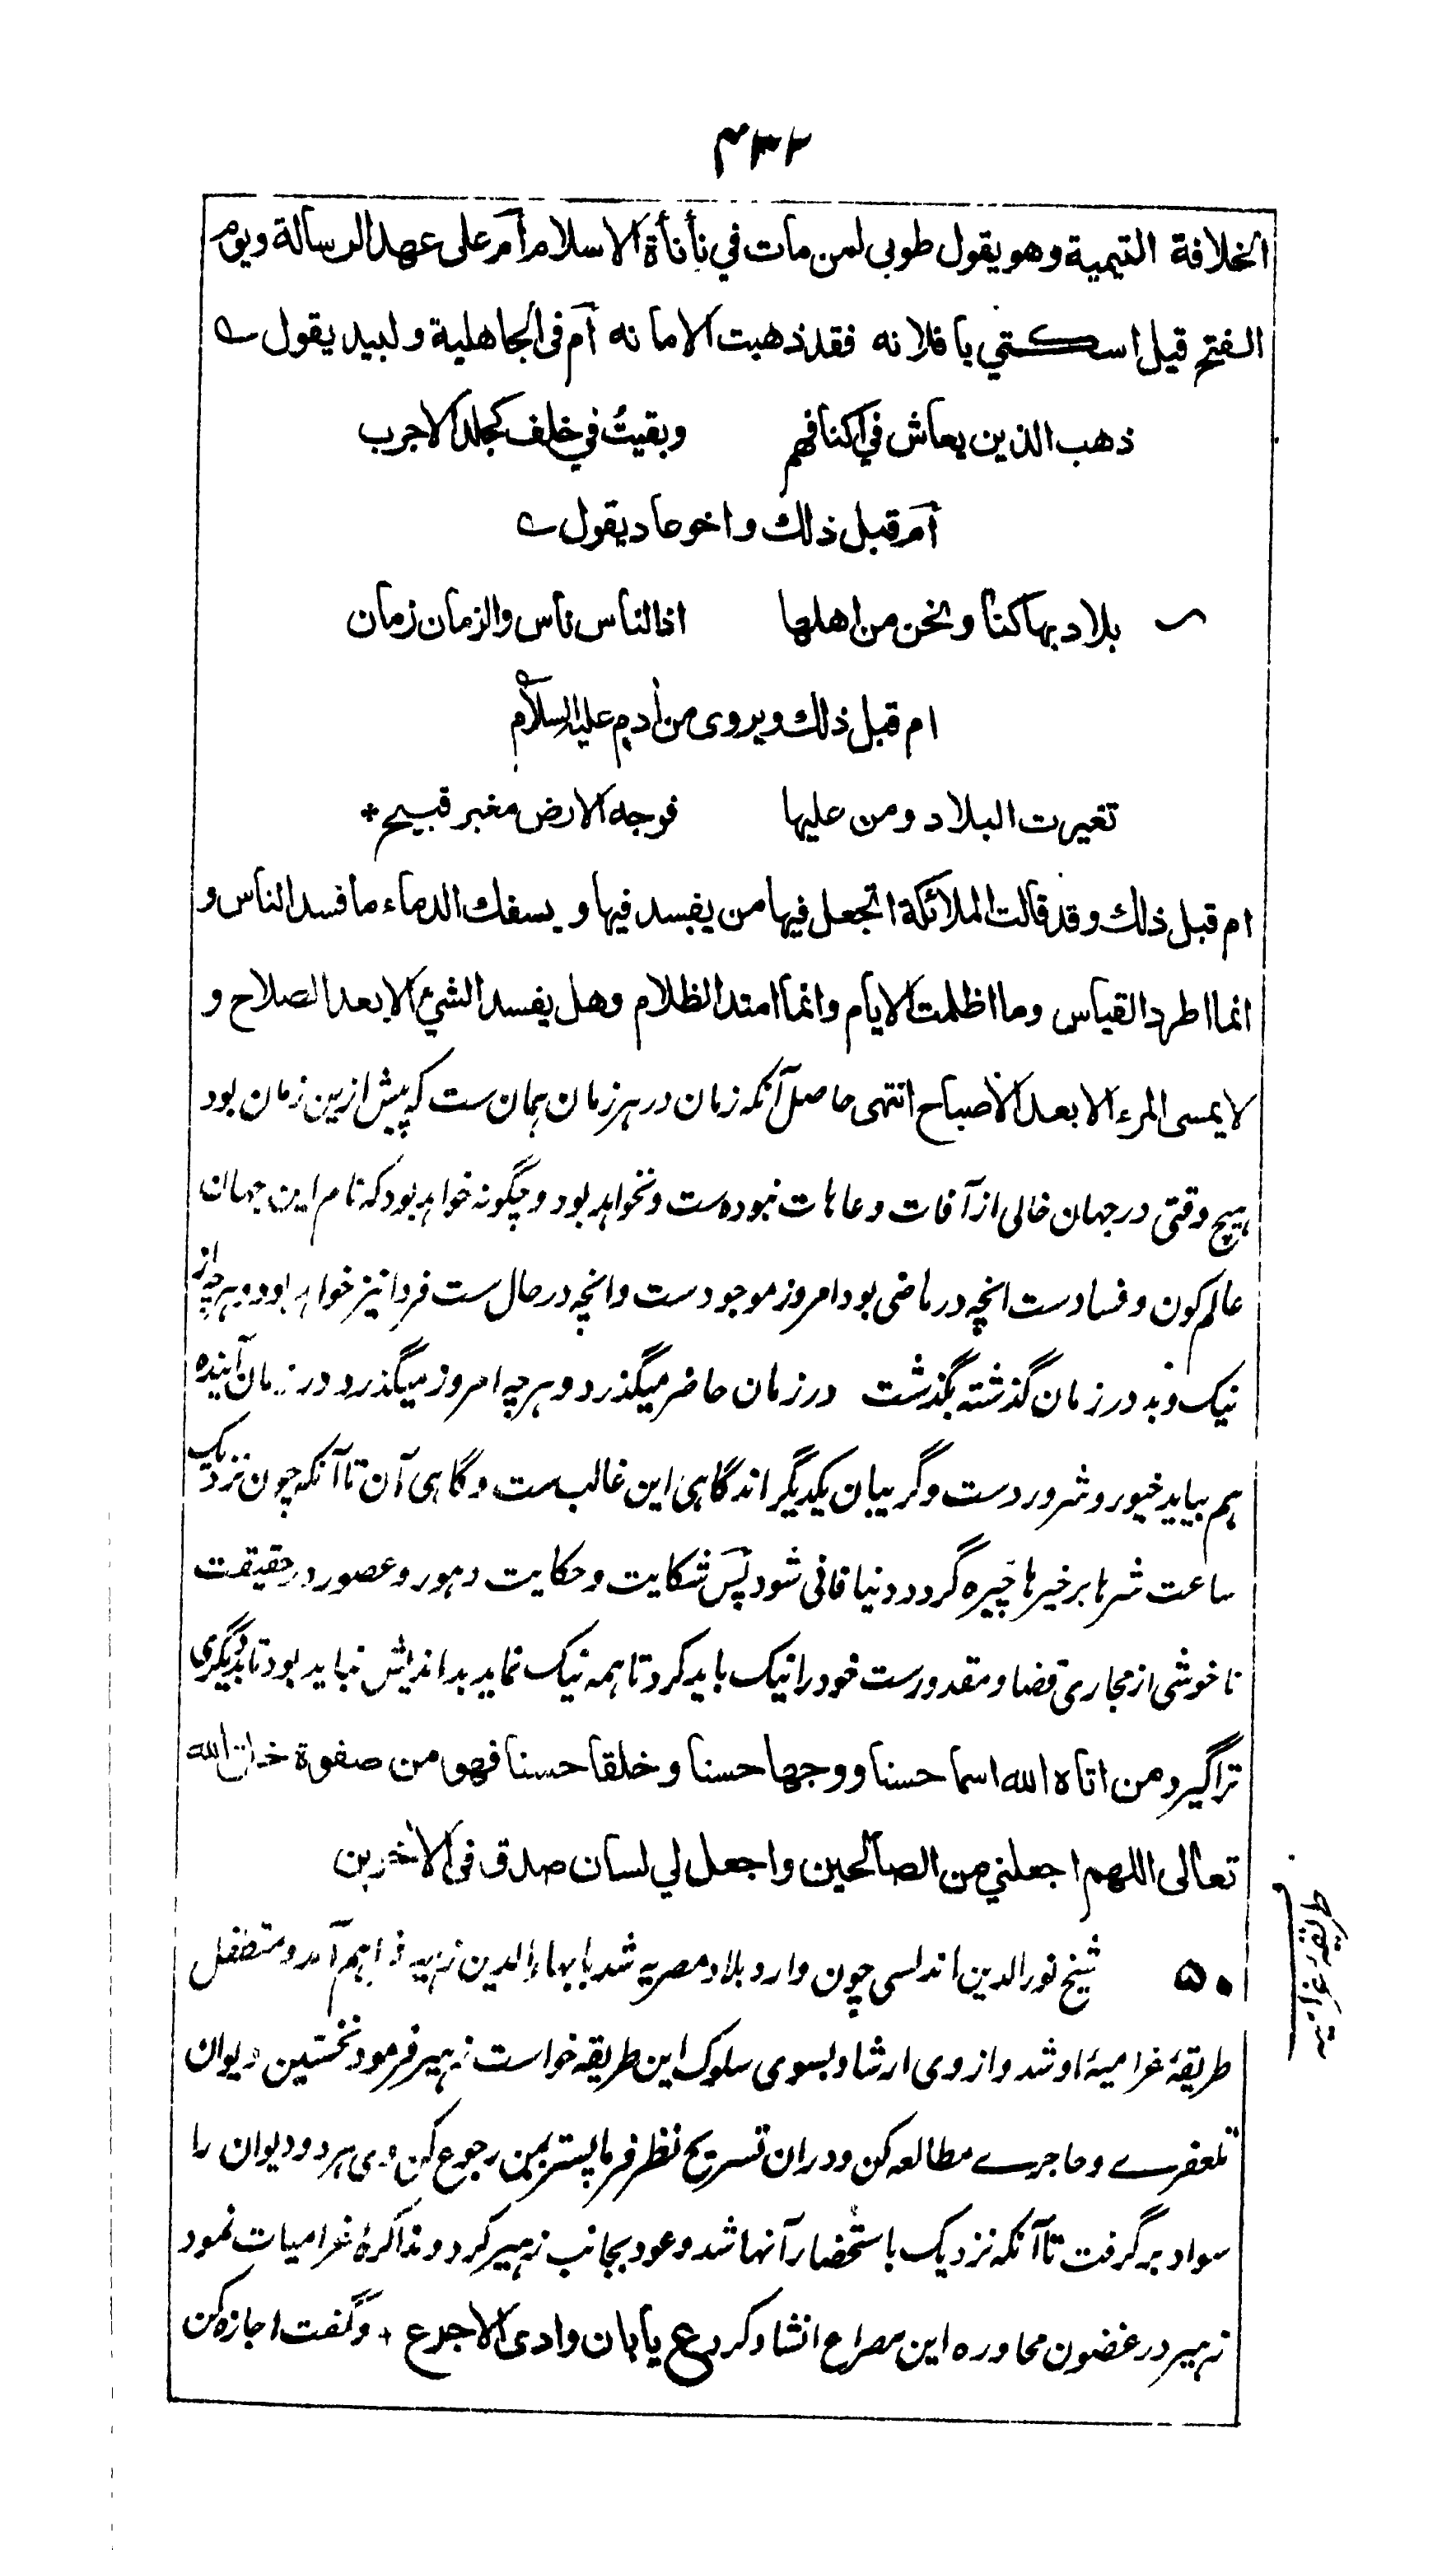 ۴۳۲
الخلافة التيمية وهو يقول طوبى لمن مات في نأنأة الاسلام أم على عهد الرسالة ويوم
الفتح قيل اسكتي يا فلانه فقد ذهبت الامانه أم فى الجاهلية ولبيد يقول ے
ذهب الذين يعاش في اكنافهم وبقيتُ في خلف كجلد الاجرب
أم قبل ذلك واخو عاد يقول ے
بلاد بها كنا ونحن من اهلها اذا لناس ناس والزمان زمان
ام قبل ذلك ويروى من أدم عليه السلام
تغيرت البلاد ومن عليها فوجه الارض مغبر قبيح*
ام قبل ذلك وقد قالت الملائكة اتجعل فيها من يفسد فيها ويسفك الدماء ما فسد الناس و
انما اطرد القياس وما اظلمت الايام وانما امتد الظلام وهل يفسد الشيئ الا بعد الصلاح و
لا يمسى المرء الا بعد الأصباح انتهى حاصل آنكه زمان در هر زمان همان ست كه پيش ازين زمان بود
هيچ وقتى در جهان خالى از آفات وعاهات نبوده ست ونخواهد بود وچگونه خواهد بود كه نام اين جهان
عالم كون وفسادست انچه در ماضى بود امروز موجودست وانچه در حال ست فردا نيز خواهد بود وهرچه از
نيک وبد در زمان گذشته بگذشت در زمان حاضر ميگذرد وهرچه امروز ميگذرد در زمان آينده
هم بيايد خيور وشرور دست وگريبان يكديگر اند گاهى اين غالب ست وگاهى آن تا آنكه چون نزديک
ساعت شرها بر خيرها چيره گردد دنيا فانى شود پس شكايت وحكايت دهور وعصور در حقيقت
ناخوشى از مجارى قضا ومقدورست خود را نيک بايد كرد تا همه نيک نمايد بد انديش نبايد بود تا بديگرى
تراگيرد من اتاه الله اسما حسنا ووجها حسنا وخلقا حسنا فهو من صفوة خلق الله
تعالى اللهم اجعلني من الصالحين واجعل لي لسان صدق فى الأخرين
۵۰ شيخ نور الدين اندلسى چون وارد بلاد مصريه شد با بهاء الدين زهير فراهم آمد ومتطفل
طريقهٔ غراميهٔ او شد و از وى ارشاد بسوى سلوک اين طريقه خواست زهير فرمود نخستين ديوان
تلعفرے وحاجرے مطالعه كن ودران تسريح نظر فرما پستر بمن رجوع كن وى هر دو ديوان را
سواد برگرفت تا آنكه نزديک باستحضار آنها شد وعود بجانب زهير كرد ومذاكرهٔ غراميات نمود
زهير در غضون محاوره اين مصراع انشاد كرد ع يا بان وادى الاجرع + وگفت اجازه كن